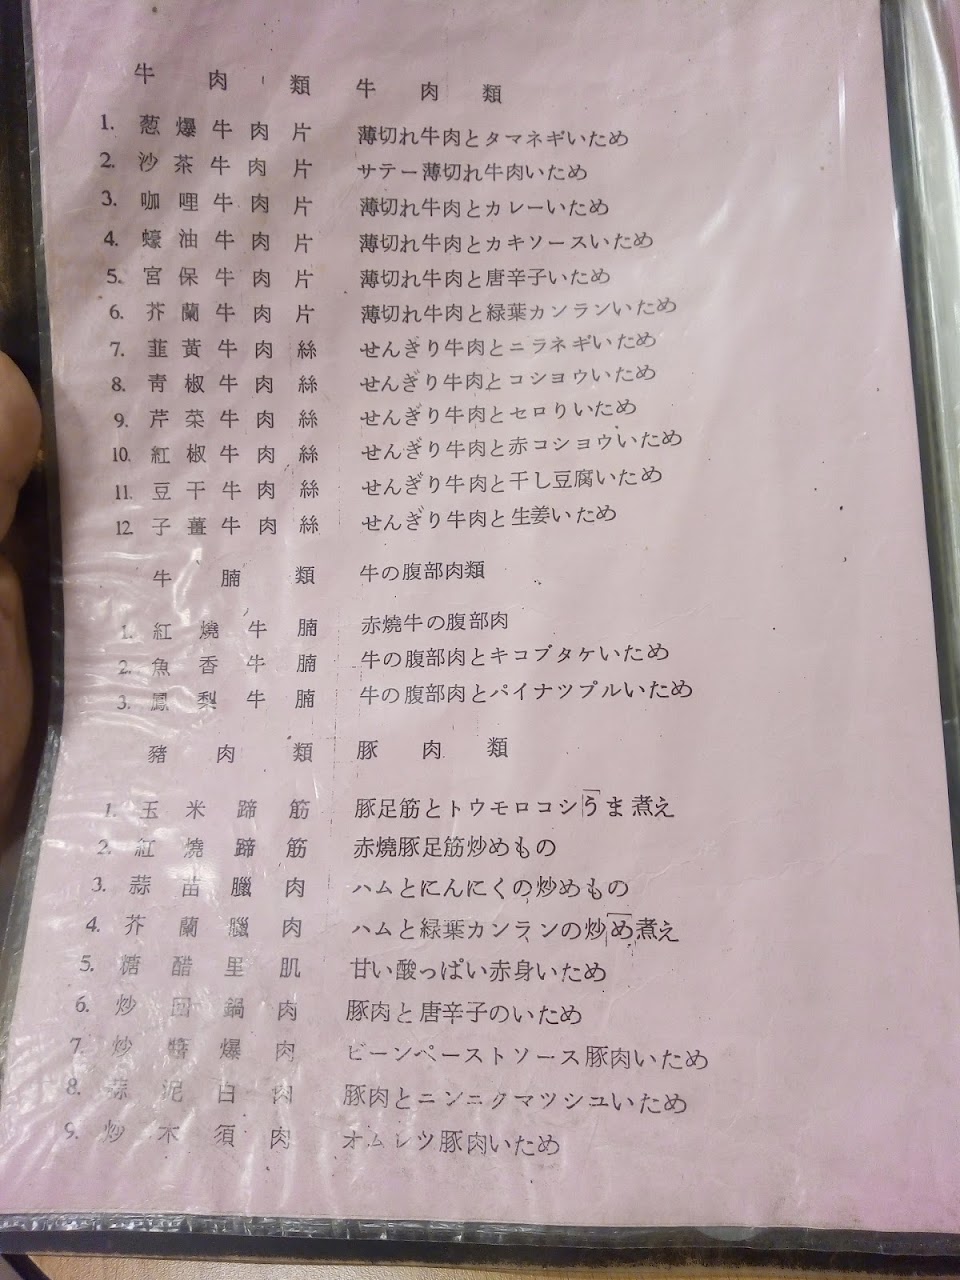 牛肉類 牛肉類
1. 葱爆牛肉片 薄切れ牛肉とタマネギいため
2. 沙茶牛肉片 サテー薄切れ牛肉いため
3. 咖哩牛肉片 薄切れ牛肉とカレーいため
4. 蠔油牛肉片 薄切れ牛肉とカキソースいため
5. 宮保牛肉片 薄切れ牛肉と唐辛子いため
6. 芥蘭牛肉片 薄切れ牛肉と緑葉カンランいため
7. 韮黃牛肉絲 せんきり牛肉とニラネギいため
8. 靑椒牛肉絲 せんぎり牛肉とコショウいため
9. 芹菜牛肉絲 せんぎり牛肉とセロりいため
10. 紅椒牛肉絲 せんぎり牛肉と赤コショウいため
11. 豆干牛肉絲 せんぎり牛肉と干し豆腐いため
12. 子薑牛肉絲 せんぎり牛肉と生姜いため
牛腩類 牛の腹部肉類
1. 紅燒牛腩 赤燒牛の腹部肉
2. 魚香牛腩 牛の腹部肉とキコブタケいため
3. 鳳梨牛腩 牛の腹部肉とパイナツプルいため
豬肉類 豚肉類
1. 玉米蹄筋 豚足筋とトウモロコシうま煮え
2. 紅燒蹄筋 赤燒豚足筋炒めもの
3. 蒜苗臘肉 ハムとにんにくの炒めもの
4. 芥蘭臘肉 ハムと緑葉カンランの炒め煮え
5. 糖醋里肌 甘い酸っぱい赤身いため
6. 炒回鍋肉 豚肉と唐辛子のいため
7. 炒醬爆肉 ビーンペーストソース豚肉いため
8. 蒜泥白肉 豚肉とニンニクマツシユいため
9. 炒木須肉 オムレツ豚肉いため